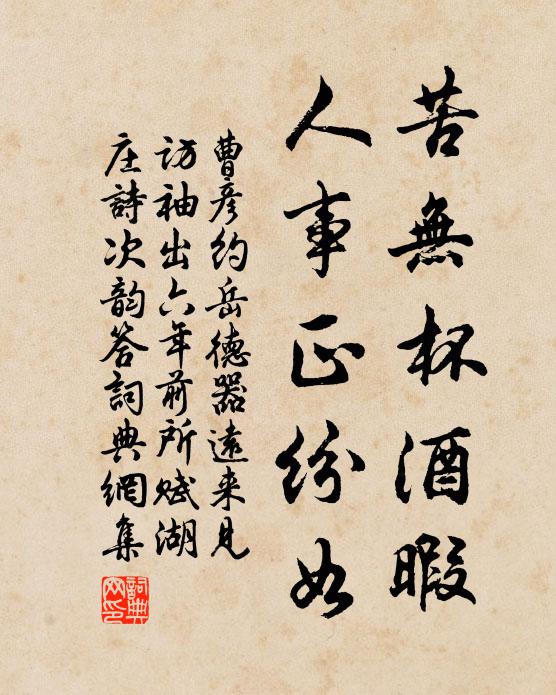 苦無杯酒暇
人事正紛如
曹彦約岳德器遠来見
訪袖出六年前所賦湖
庄詩次韵答詞典網集
詞典網印